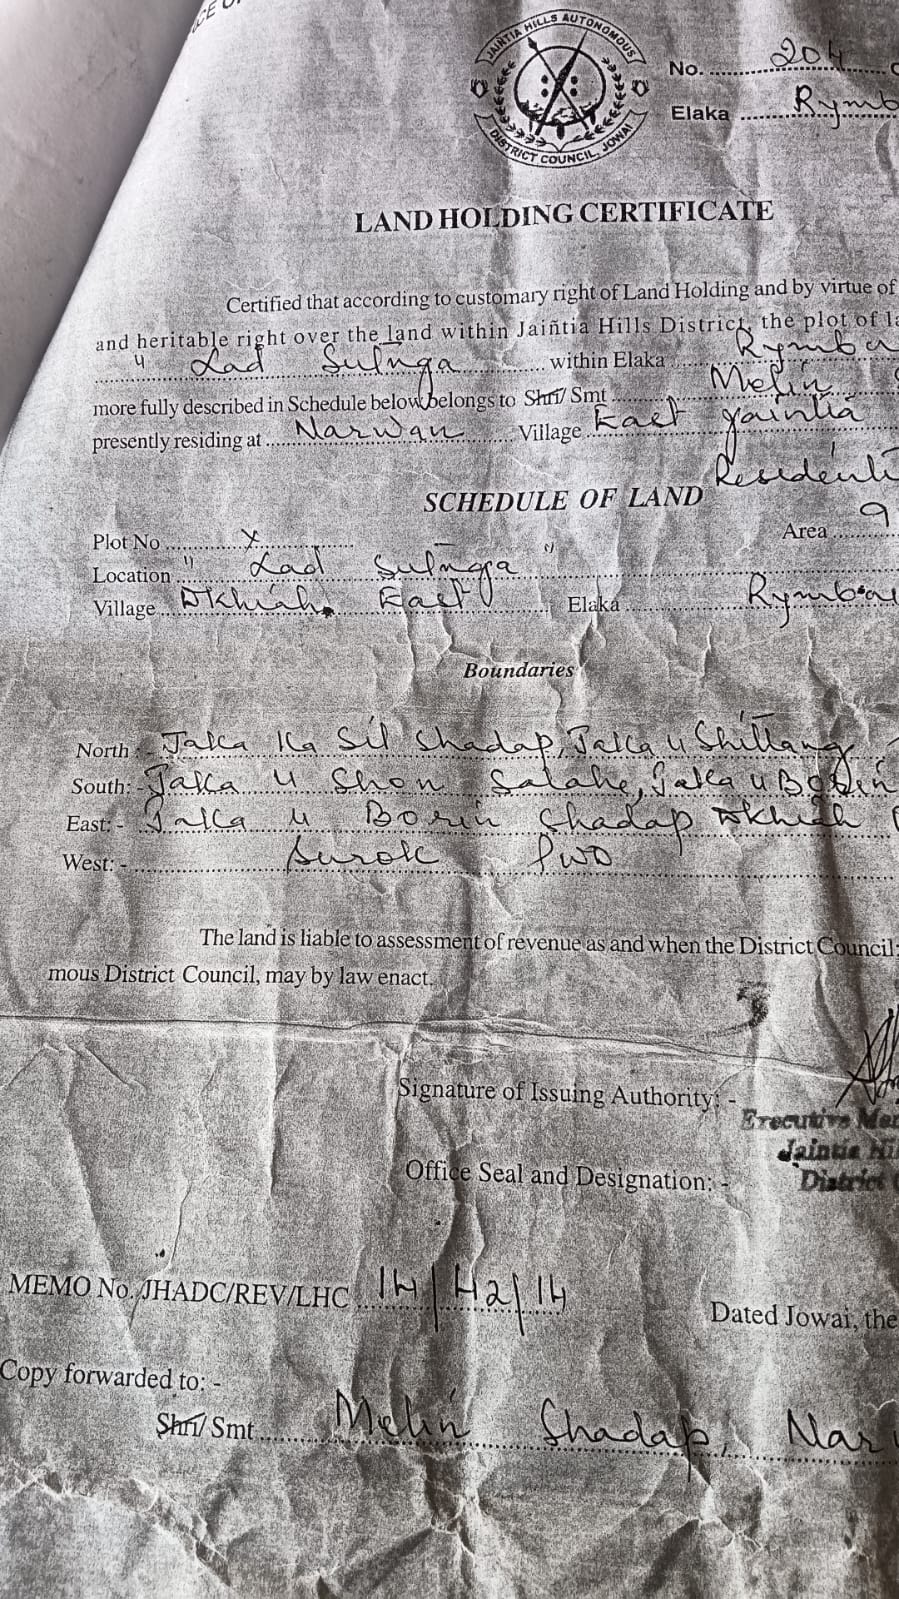 CE O
JAIÑTIA HILLS AUTONOMOUS
DISTRICT COUNCIL, JOWAI
No. 204
Elaka Rymb
LAND HOLDING CERTIFICATE
Certified that according to customary right of Land Holding and by virtue of
and heritable right over the land within Jaiñtia Hills District, the plot of la
" Lad Sutnga within Elaka Rymba
more fully described in Schedule below belongs to Shri/ Smt Melin
presently residing at Narwan Village East Jaintia
Residenti
SCHEDULE OF LAND
Plot No X Area 9
Location " Lad Sutnga "
Village Dkhiah East Elaka Rymbai
Boundaries
North :- Jaka Ka Sil Shadap, Jaka u Shittang
South: - Jaka u Shon Salahe, Jaka u Borin
East: - Jaka u Borin Shadap Dkhiah
West: - Surok PWD
The land is liable to assessment of revenue as and when the District Council
mous District Council, may by law enact.
Signature of Issuing Authority: -
Executive Mem
Jaintia Hil
Office Seal and Designation: - District C
MEMO No. JHADC/REV/LHC 14/42/14
Dated Jowai, the
Copy forwarded to: -
Shri/ Smt Melin Shadap, Nar